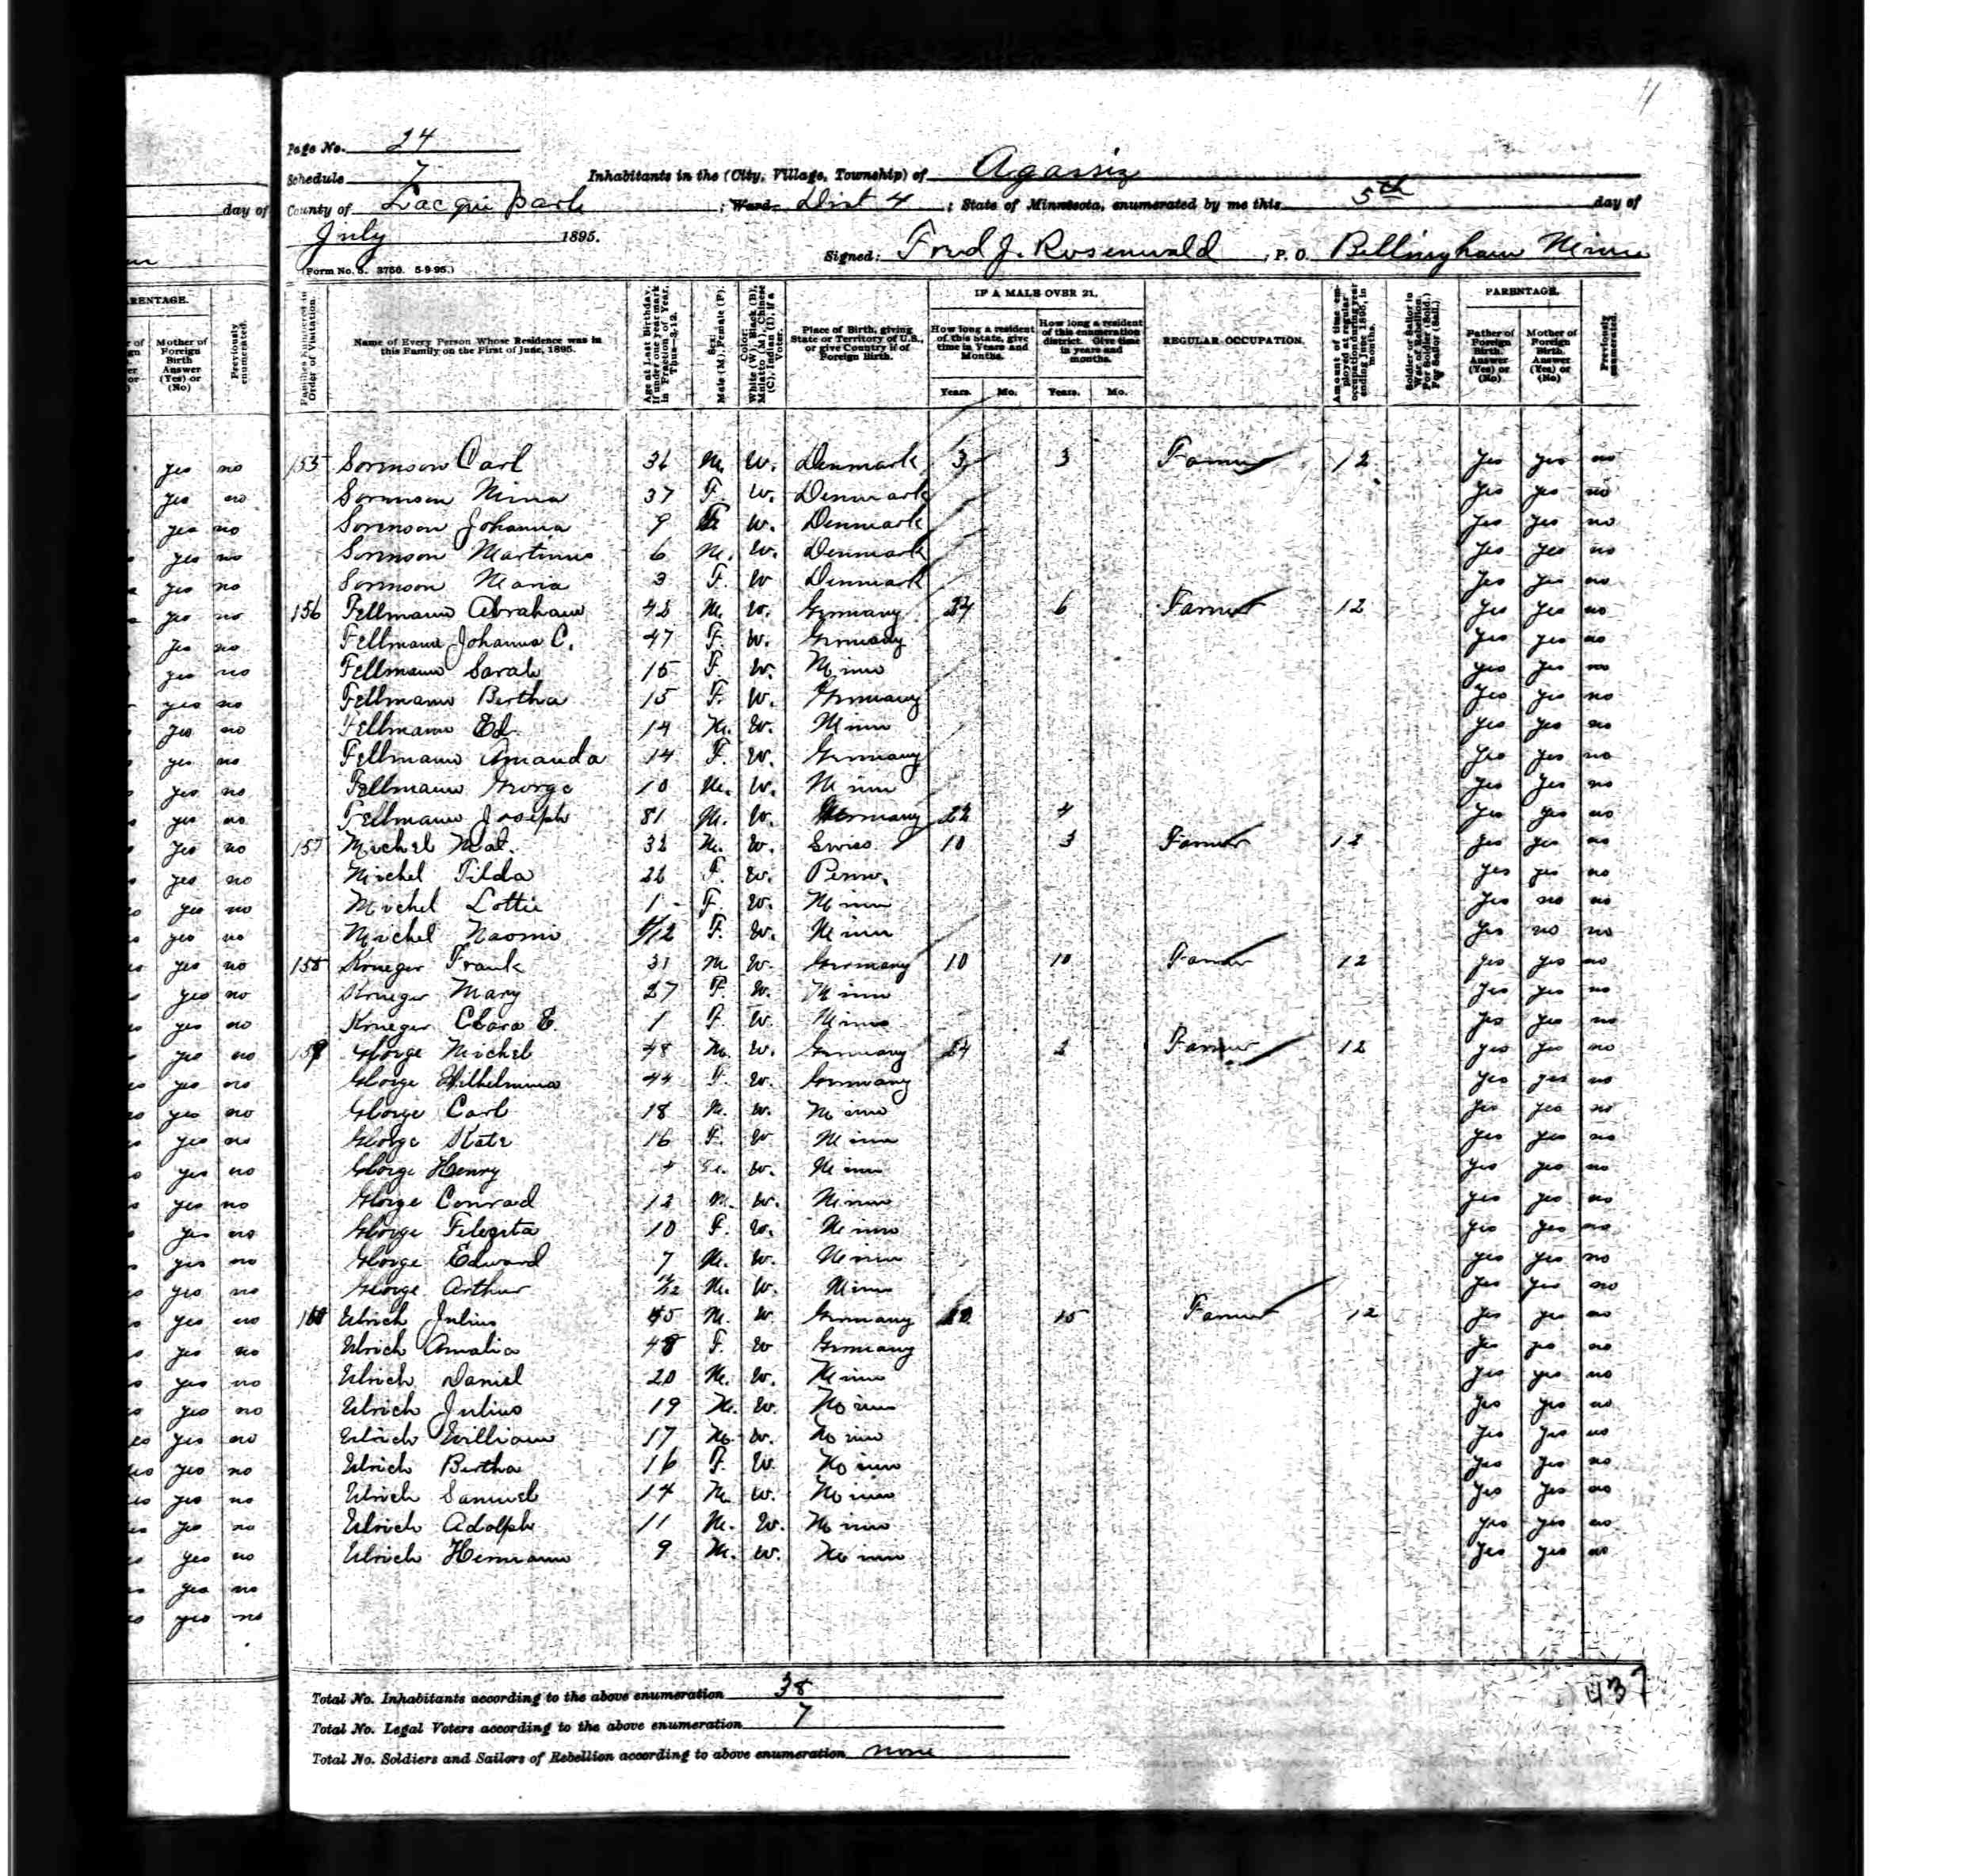 Page No. 24
Schedule 7 Inhabitants in the (City, Village, Township) of Agassiz
County of Lacqui Parle ; Ward, Dist 4 ; State of Minnesota, enumerated by me this 5th day of
July 1895.
Signed: Fred J. Rosenwald ; P. O. Bellingham Minn
(Form No. 5. 3750. 5-9-95.)
Families Numbered in Order of Visitation.
Name of Every Person Whose Residence was in this Family on the First of June, 1895.
Age at Last Birthday. If under one year mark in Fraction of Year. Thus—3-12.
Sex: Male (M), Female (F).
Color: White (W), Black (B), Mulatto (M), Chinese (C), Indian (I), if a Voter.
Place of Birth, giving State or Territory of U.S., or give Country if of Foreign Birth.
IF A MALE OVER 21.
How long a resident of this State, give time in Years and Months.
How long a resident of this enumeration district. Give time in years and months.
Years. Mo. Years. Mo.
REGULAR OCCUPATION.
Amount of time employed at regular occupation during year ending June 1895, in months.
Soldier or Sailor in War of Rebellion. For Soldier (Sold.) For Sailor (Sail.)
PARENTAGE.
Father of Foreign Birth. Answer (Yes) or (No)
Mother of Foreign Birth. Answer (Yes) or (No)
Previously enumerated.
155 Sorenson Carl M. W. Denmark 3 3 Farmer 12 yes yes no
Sorenson Mina 37 F. W. Denmark yes yes no
Sorenson Johanna 9 F. W. Denmark yes yes no
Sorenson Martinus 6 M. W. Denmark yes yes no
Sorenson Maria 3 F. W Denmark yes yes no
156 Fellmann Abraham M. W. Germany 6 Farmer 12 yes yes no
Fellmann Johanna C. 47 F. W. Germany yes yes no
Fellmann Sarah F. W. Minn yes yes no
Fellmann Bertha 15 F. W. Germany yes yes no
Fellmann Ed. 14 M. W. Minn yes yes no
Fellmann Amanda 14 F. W. Germany yes yes no
Fellmann George 10 M. W. Minn yes yes no
Fellmann Joseph 81 M. W. Germany 4 yes yes no
157 Michel Mat. M. W. Swiss 10 3 Farmer 12 yes yes no
Michel Tilda 26 F. W. Penn. yes yes no
Michel Lottie 1 F. W. Minn yes no no
Michel Naomi F. W. Minn yes no no
158 Krueger Frank 31 M W. Germany 10 10 Farmer 12 yes yes no
Krueger Mary 27 F. W. Minn yes yes no
Krueger Clara E. 1 F. W. Minn yes yes no
159 George Michel 48 M. W. Germany Farmer 12 yes yes no
George Wilhelmina 44 F. W. Germany yes yes no
George Carl 18 M. W. Minn yes yes no
George Kate 16 F. W Minn yes yes no
George Henry W. Minn yes yes no
George Conrad 12 M. W. Minn yes yes no
George Filezita 10 F. W. Minn yes yes no
George Edward 7 M. W. Minn yes yes no
George Arthur M. W. Minn yes yes no
160 Ulrich Julius M. W. Germany 15 Farmer 12 yes yes no
Ulrich Amalia 48 F. W Germany yes yes no
Ulrich Daniel 20 M. W. Minn yes yes no
Ulrich Julius 19 M. W. Minn yes yes no
Ulrich William 17 M. W. Minn yes yes no
Ulrich Bertha 16 F. W. Minn yes yes no
Ulrich Samuel 14 M. W. Minn yes yes no
Ulrich Adolph 11 M. W. Minn yes yes no
Ulrich Hermann 9 M. W. Minn yes yes no
Total No. Inhabitants according to the above enumeration 38
Total No. Legal Voters according to the above enumeration 7
Total No. Soldiers and Sailors of Rebellion according to above enumeration none
437